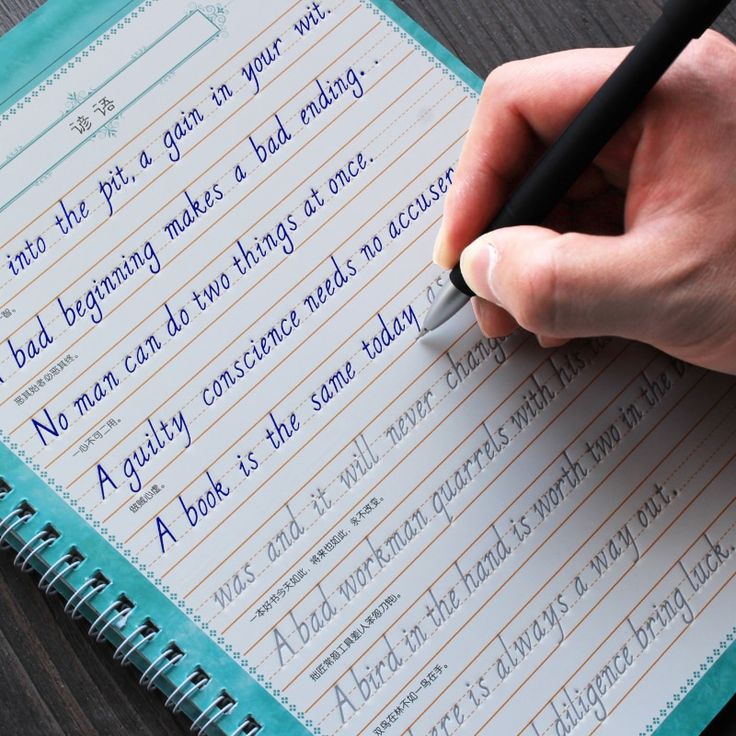 谚语
into the pit, a gain in your wit.
bad beginning makes a bad ending..
恶其始者必恶其终。
No man can do two things at once.
一心不可二用。
A guilty conscience needs no accuser
做贼心虚。
A book is the same today as
was and it will never chang
一本好书今天如此，将来也如此，永不改变。
A bad workman quarrels with his
拙匠常怨工具差(人笨怨刀钝)。
A bird in the hand is worth two in the
双鸟在林不如一鸟在手。
ere is always a way out.
diligence bring luck.